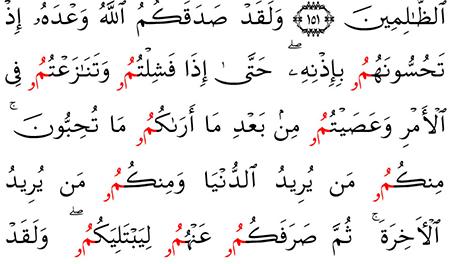 ٱلظَّٰلِمِينَ ١٥١ وَلَقَدۡ صَدَقَكُمُ ٱللَّهُ وَعۡدَهُۥ إِذۡ
تَحُسُّونَهُمُۥ بِإِذۡنِهِۦۖ حَتَّىٰٓ إِذَا فَشِلۡتُمُۥ وَتَنَٰزَعۡتُمُۥ فِي
ٱلۡأَمۡرِ وَعَصَيۡتُمُۥ مِنۢ بَعۡدِ مَآ أَرَىٰكُمُۥ مَا تُحِبُّونَۚ
مِنكُمُۥ مَن يُرِيدُ ٱلدُّنۡيَا وَمِنكُمُۥ مَن يُرِيدُ
ٱلۡأٓخِرَةَۚ ثُمَّ صَرَفَكُمُۥ عَنۡهُمُۥ لِيَبۡتَلِيَكُمُۥۖ وَلَقَدۡ